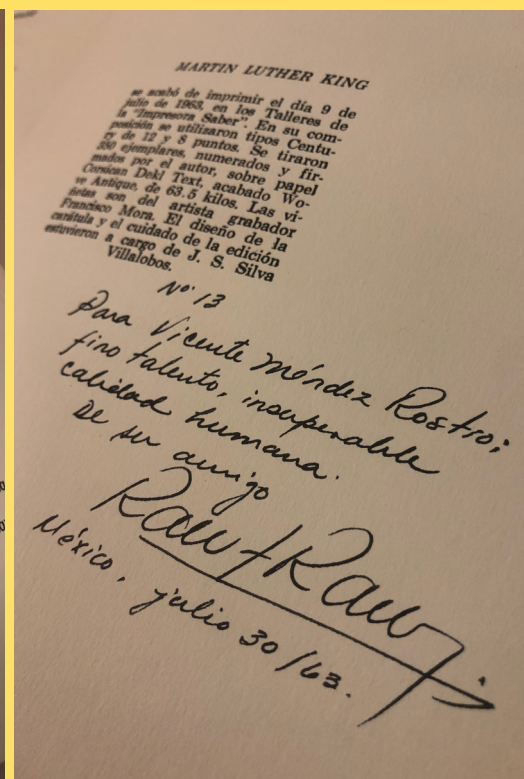 MARTIN LUTHER KING
se acabó de imprimir el día 9 de
julio de 1963, en los Talleres de
la "Impresora Saber". En su com-
posición se utilizaron tipos Centu-
ry de 12 y 8 puntos. Se tiraron
330 ejemplares, numerados y fir-
mados por el autor, sobre papel
Corsican Dekl Text, acabado Wo-
ve Antique, de 63.5 kilos. Las vi-
ñetas son del artista grabador
Francisco Mora. El diseño de la
carátula y el cuidado de la edición
estuvieron a cargo de J. S. Silva
Villalobos.
Nº 13
Para Vicente Méndez Rostro;
fino talento, insuperable
calidad humana.
De su amigo
México, julio 30/63.